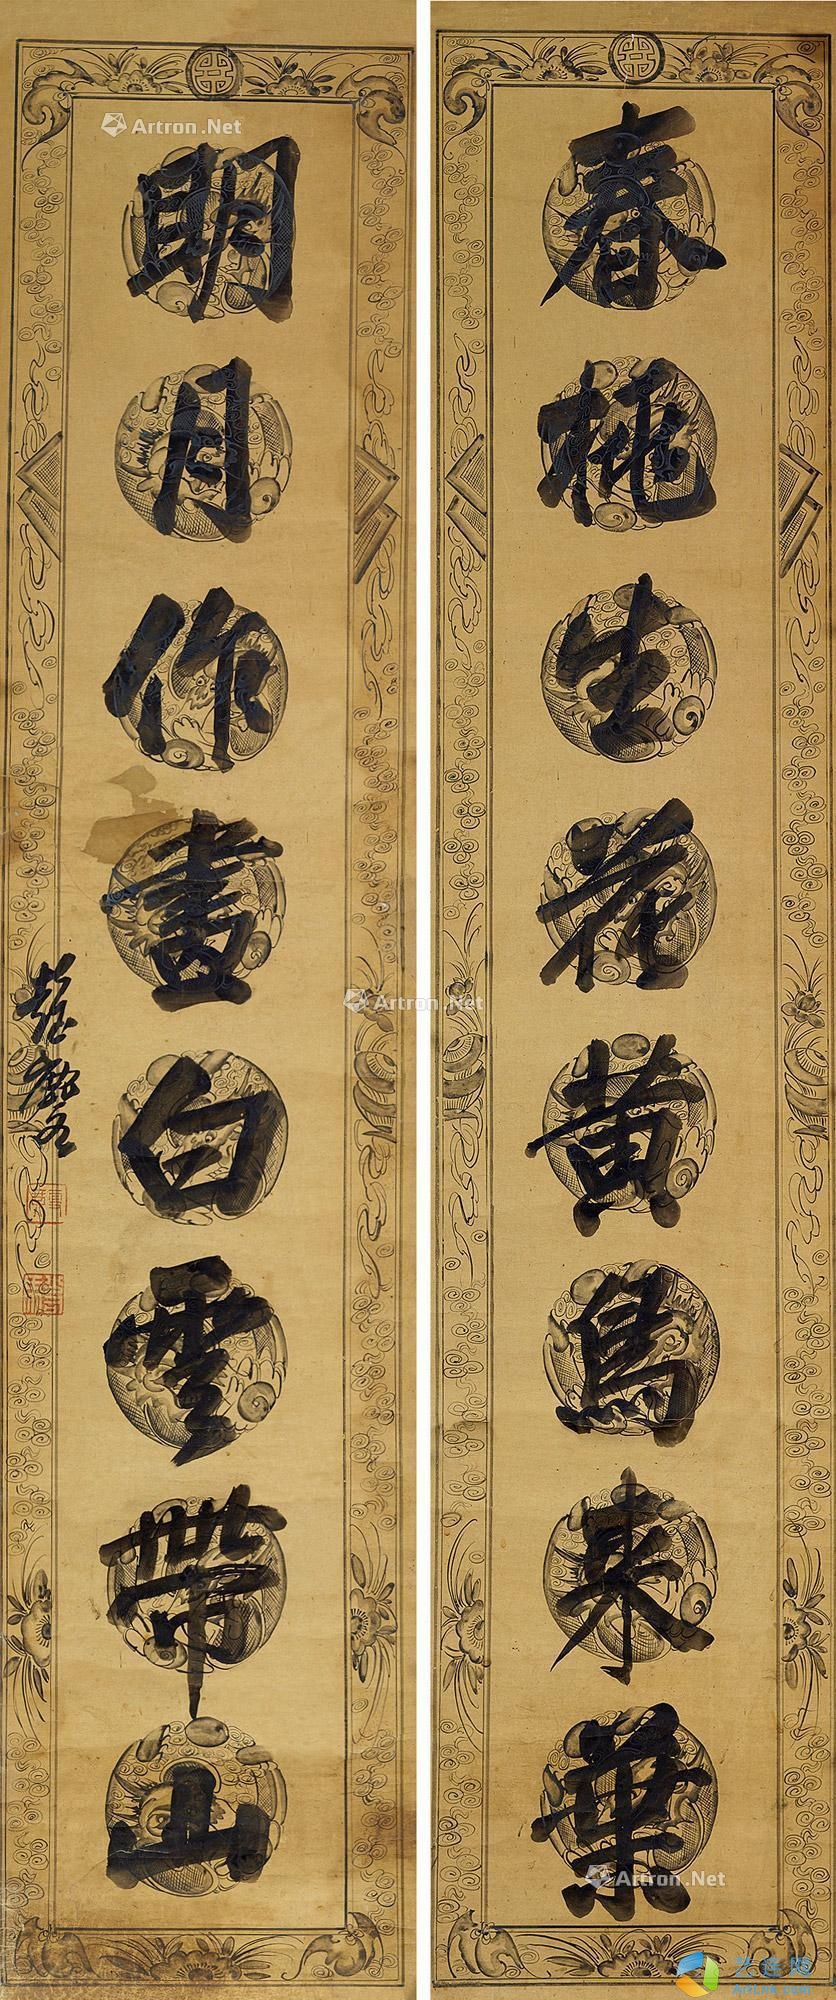 春桃生花黄鳥来葉
明月作畫白雲帶山
趙藩
Artron.Net
Artron.Net
Artron.Net